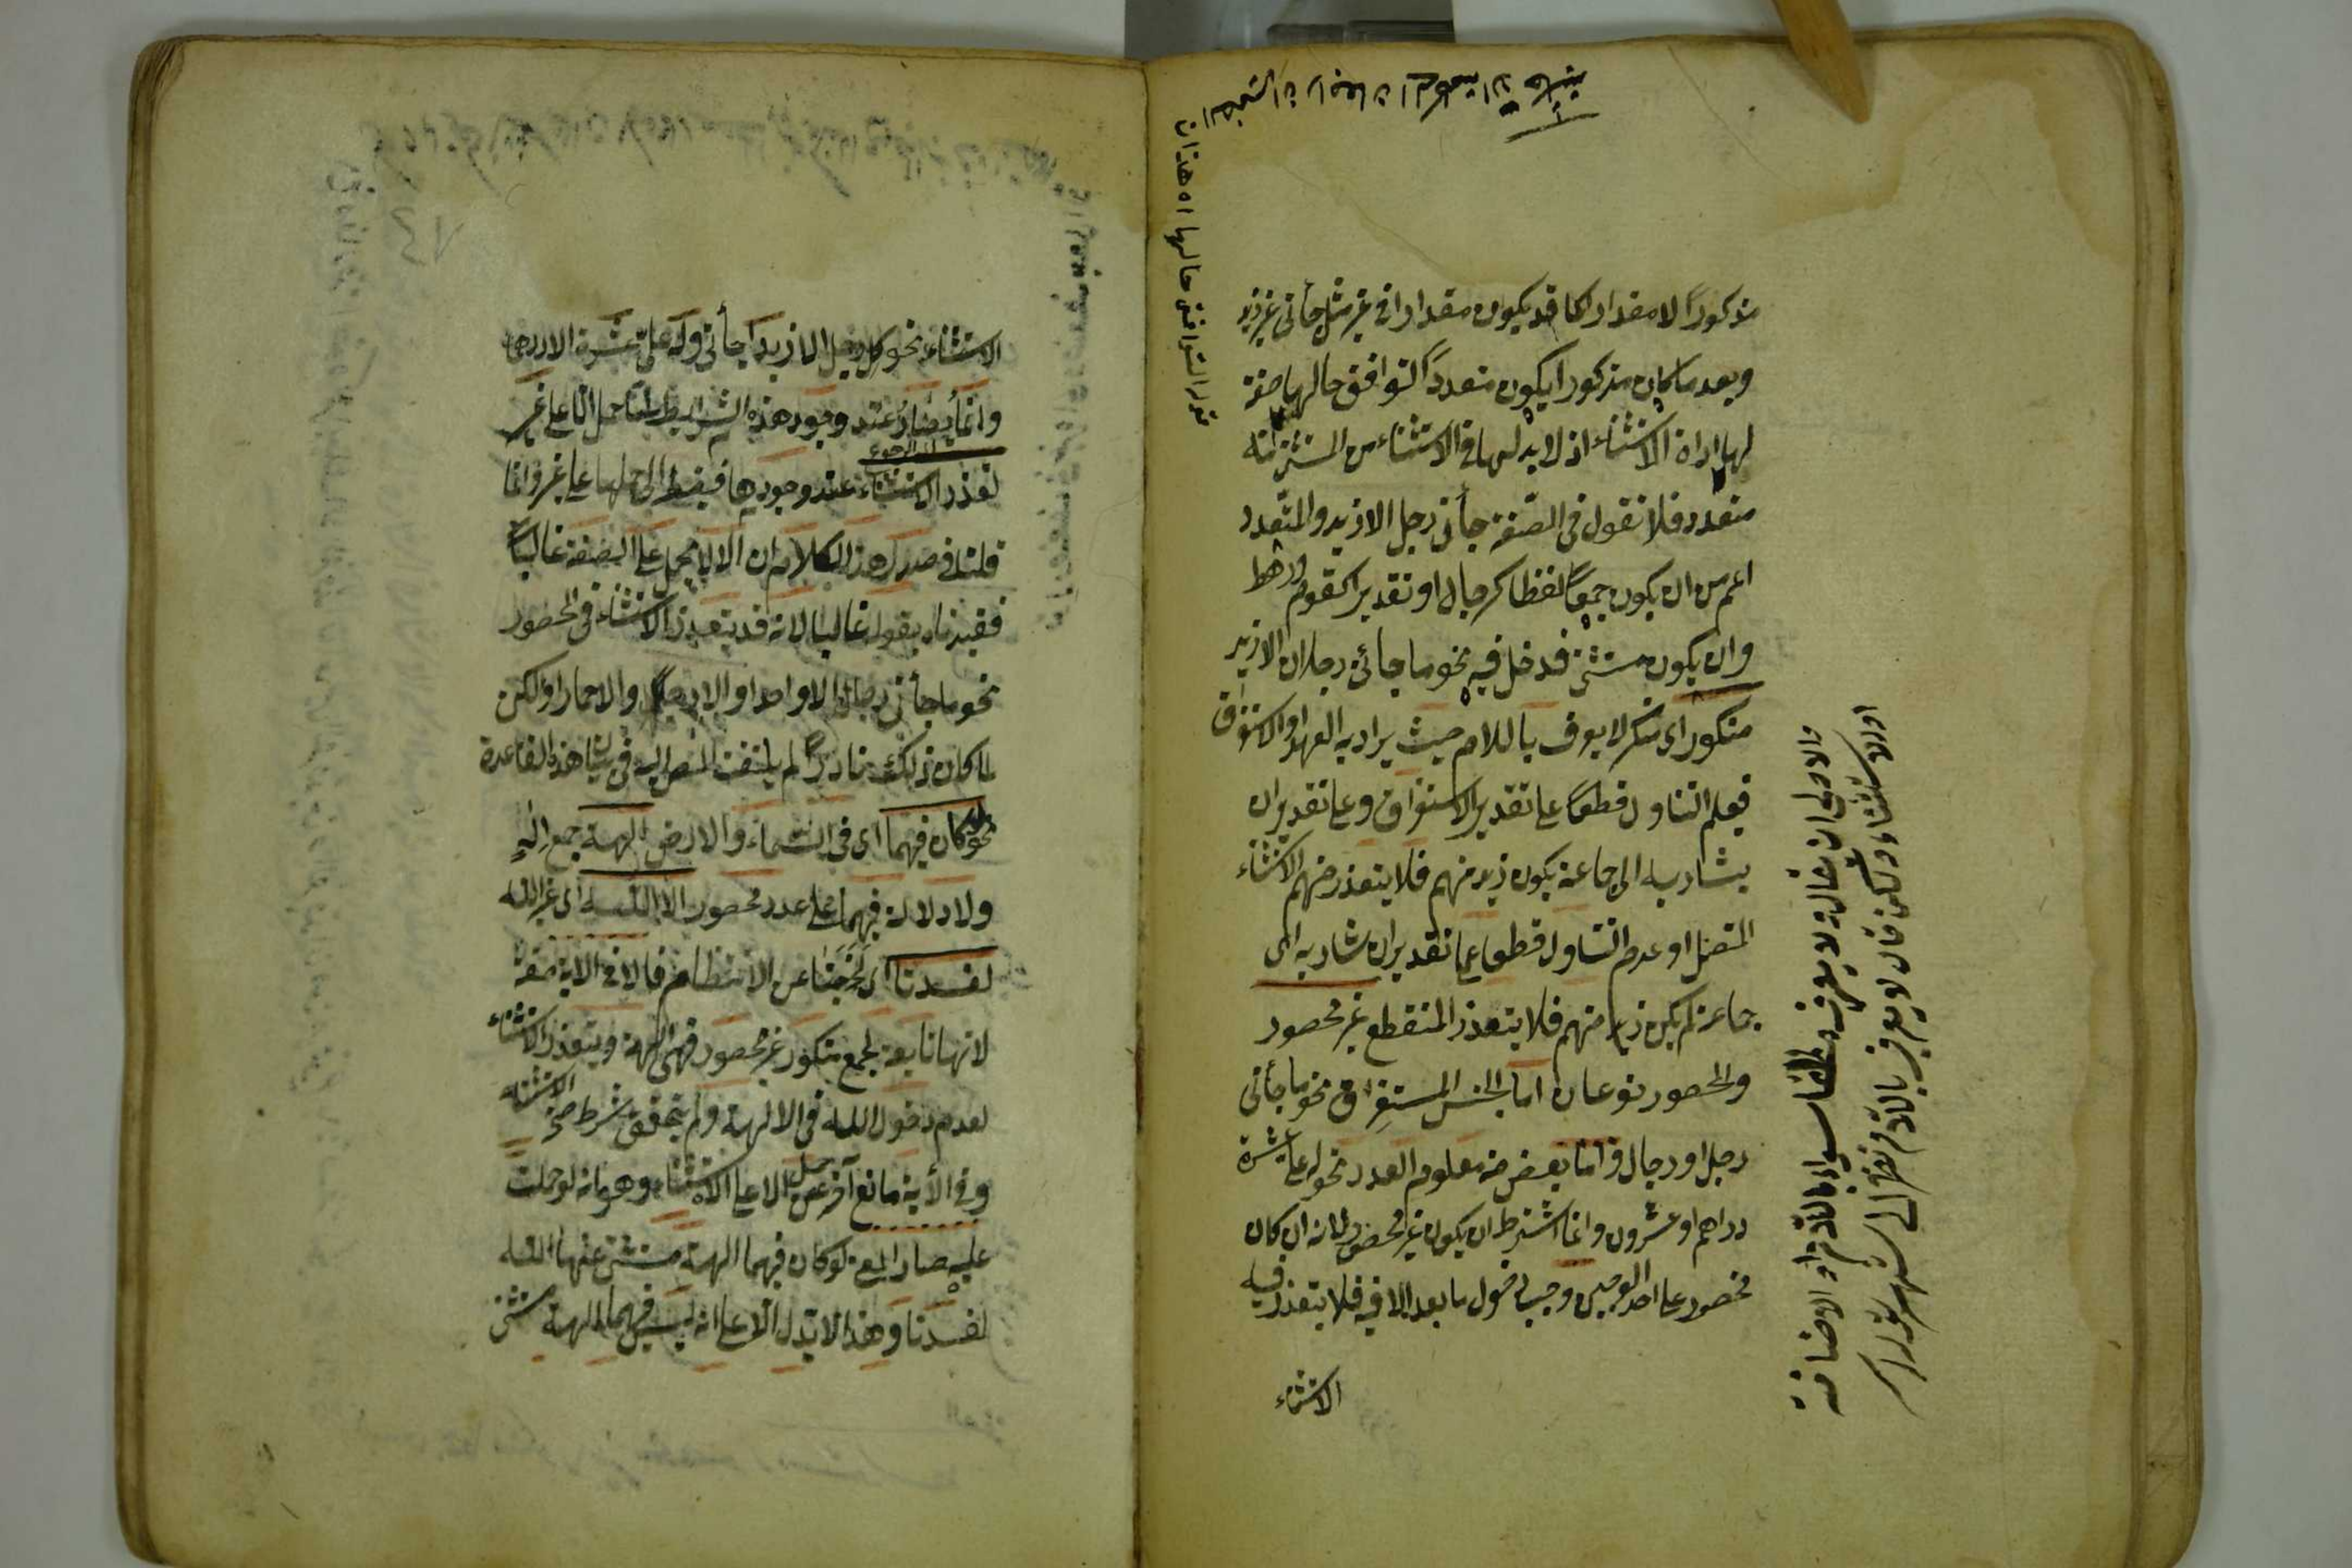 مذكوراً لا مقدارا كما قد يكون مقدارا في غير مثل جاءني غير زيد
وبعد ما كان مذكورا يكون متعدداً لتوافق حالها صفة
لها اداة الاستثناء اذ لا بد لها في الاستثناء من المستثنى منه
متعدد فلا تقول في الصفة جاءني رجل الا زيد والمتعدد
اعم من ان يكون جمعاً لفظا كرجال او تقديرا كقوم ورهط
وان يكون مثنى فدخل فيه نحو ما جاءني رجلان الا زيد
منكور اي منكر لا يعرف باللام حيث يراد به العهد او الاستغراق
فيعلم التناول قطعاً على تقدير الاستغراق وعلى تقدير ان
يشار به الى جماعة يكون زيد منهم فلا يتعذر منهم الاستثناء
المتصل او عدم التناول قطعا على تقدير ان يشار به الى
جماعة لم يكن زيد منهم فلا يتعذر المنقطع غير محصور
والمحصور نوعان اما الجنس المستغرق نحو ما جاءني
رجل او رجال واما بعض منه معلوم العدد نحو له علي عشرة
دراهم او عشرون وانما اشترط ان يكون غير محصور لانه ان كان
محصورا على احد الوجهين وجب دخول ما بعد الا فيه فلا يتعذر فيه
الاستثناء
والاولى ان يقال ولا يعرف سواء باللام او الاضافة
الاستثناء ولكن قال لا يعرف باللام نظرا الى
الاستثناء نحو كل رجل الا زيدا جاءني وله علي عشرة الا درهما
وانما يصار عند وجود هذه الشرائط الى حمل الا على غير
لتعذر الاستثناء عند وجودها فيضطر الى حملها على غير وانما
قلنا في صدر هذا الكلام ان الا لا يحمل على الصفة غالباً
فقيدناه بقوله غالبا لانه قد يتعذر الاستثناء في المحصور
نحو ما جاءني رجل الا واحدا والا رجلا والا حمارا ولكن
لما كان ذلك نادراً لم يلتفت المص اليه في بيان هذه القاعدة
نحو لو كان فيهما اي في السماء والارض آلهة جمع اله
ولا دلالة فيهما على عدد محصور الا الله اي غير الله
لفسدتا اي لخرجتا عن الانتظام فالا في الاية صفة
لانها تابعة لجمع منكور غير محصور فهي آلهة ويتعذر الاستثناء
لعدم دخول الله في الالهة ولم يتحقق شرط صحة الاستثناء
وفي الآية مانع آخر عن حمل الا على الاستثناء وهو انه لو حملت
عليه صار المعنى لو كان فيهما الهة مستثنى عنها الله
لفسدتا وهذا لا يدل الا على انه ليس فيهما الهة مستثنى